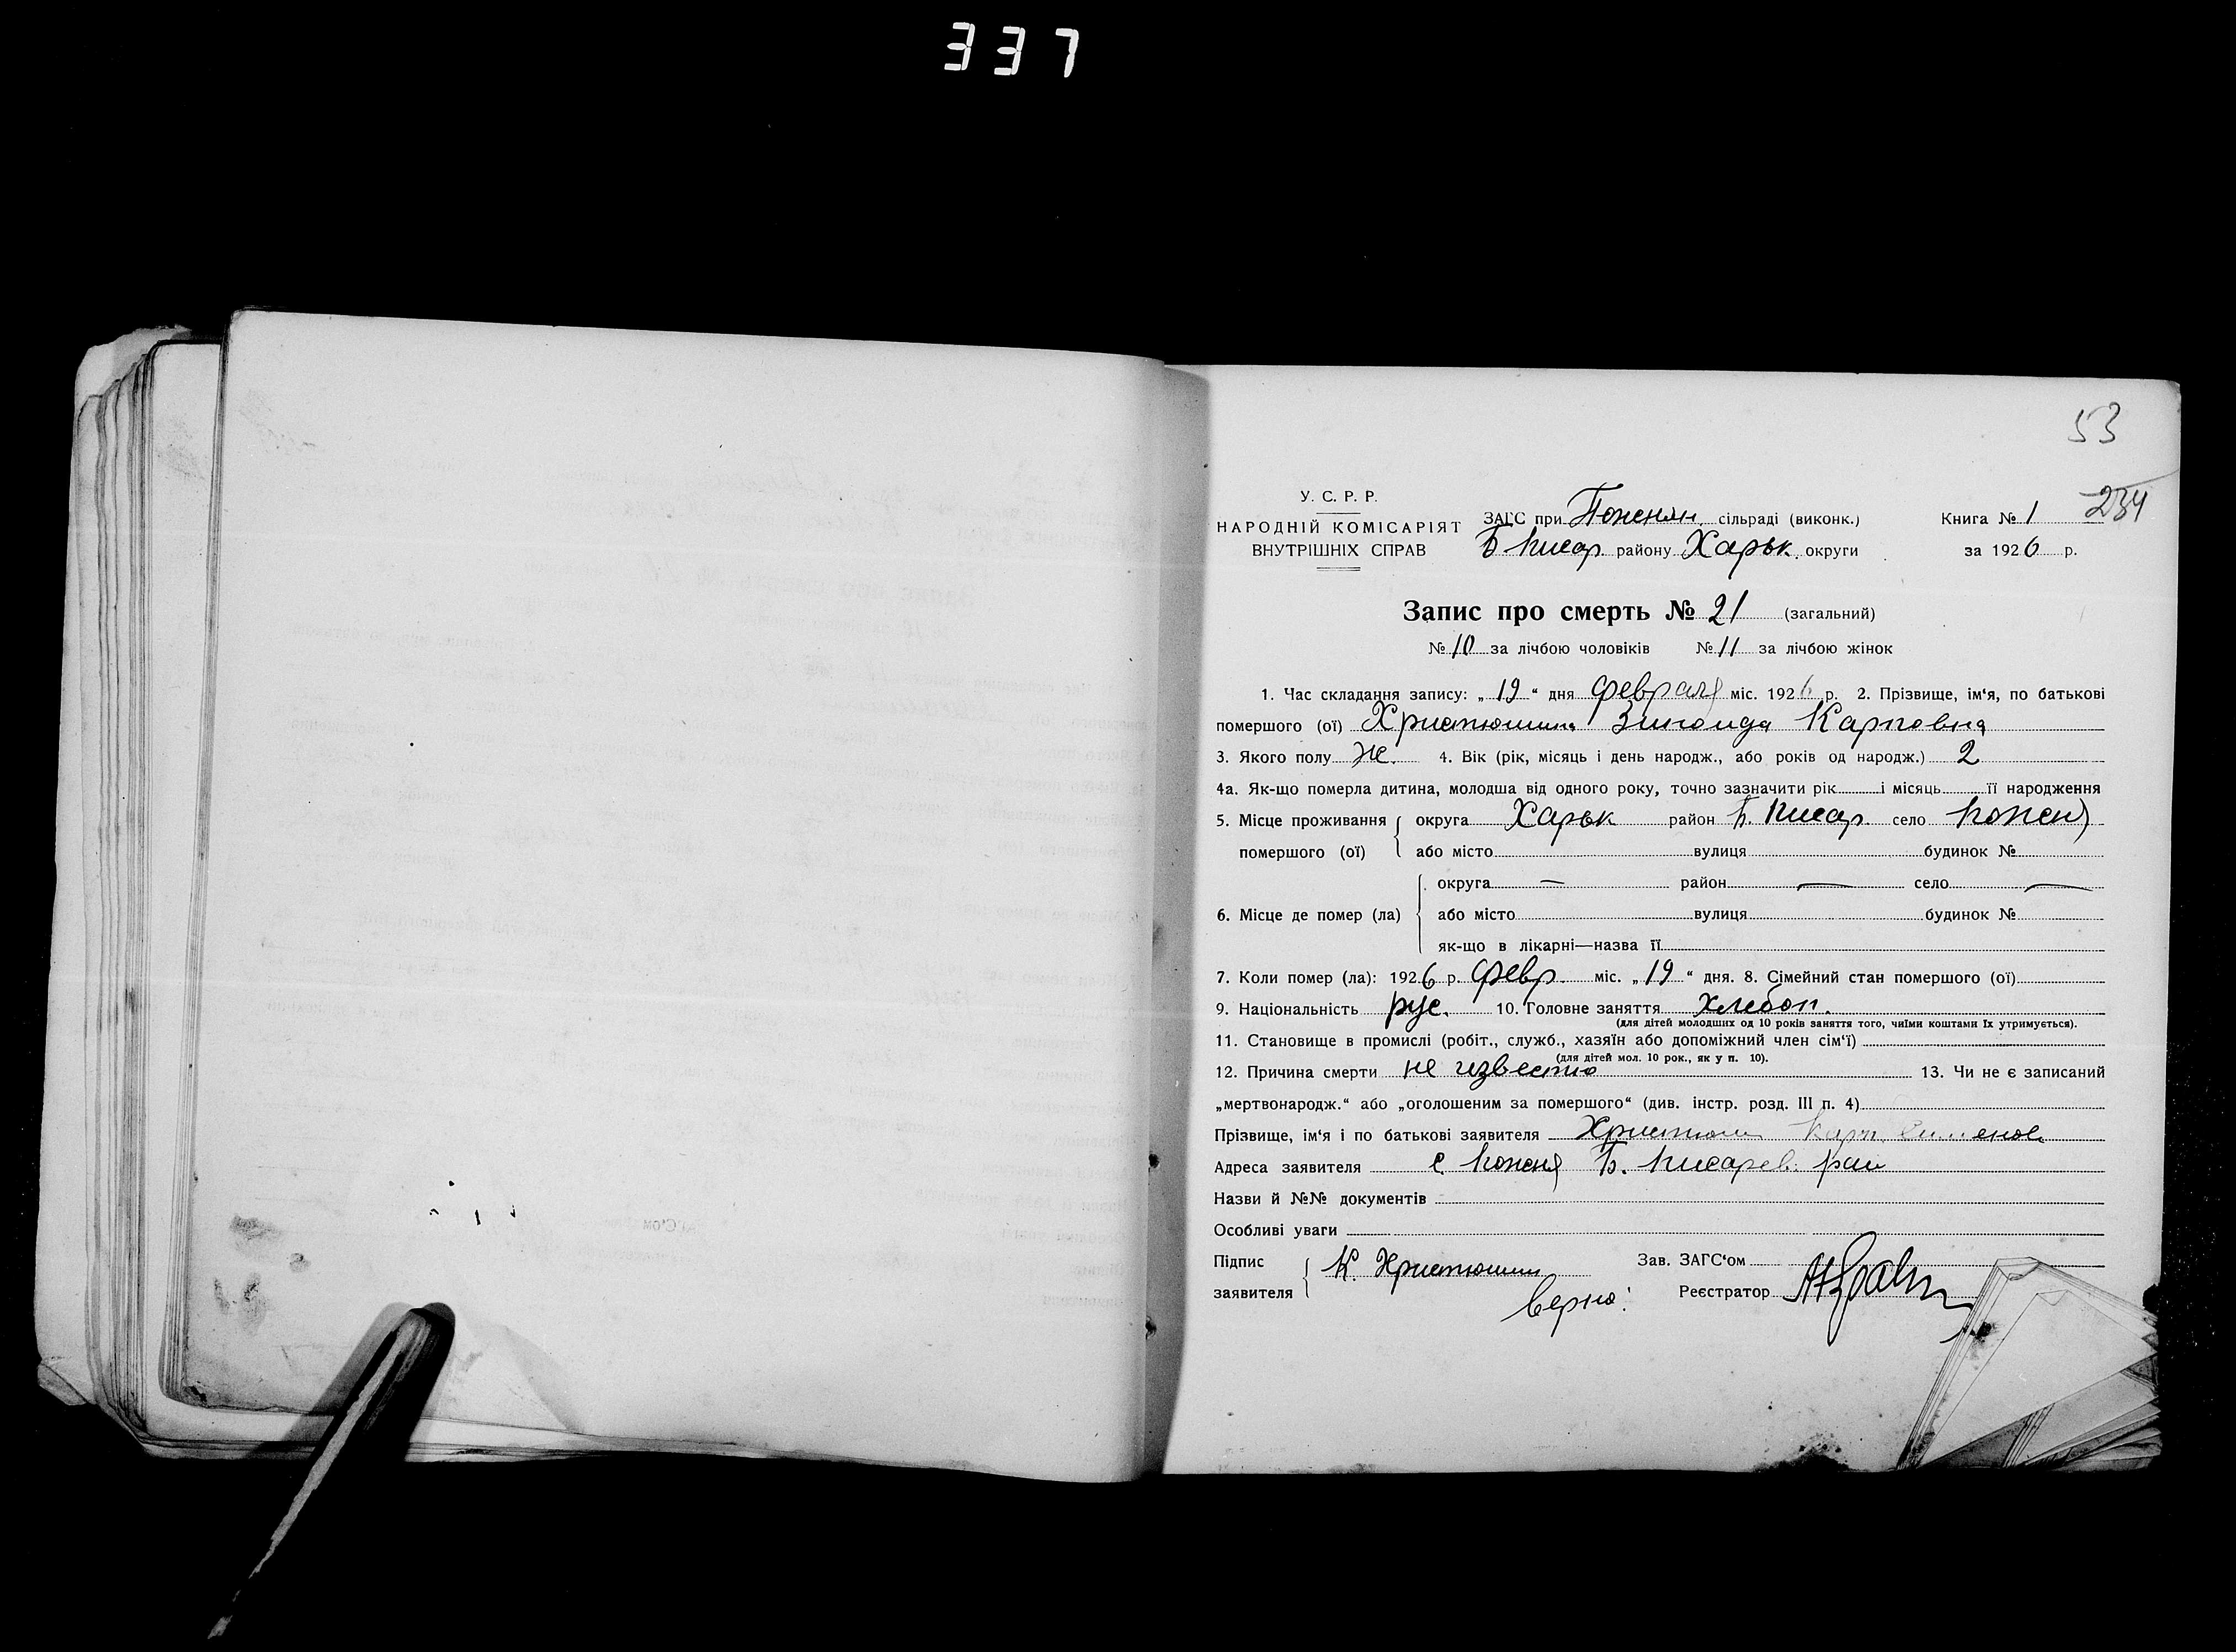 337
53
У. С. Р. Р.
НАРОДНІЙ КОМІСАРІЯТ
ВНУТРІШНІХ СПРАВ
ЗАГС при сільраді (виконк.)
Б Писар. району Харьк. округи
Книга № 1
234
за 1926 р.
Запис про смерть № 21 (загальний)
№ 10 за лічбою чоловіків № 11 за лічбою жінок
1. Час складання запису: „ 19 “ дня февраля міс. 1926 р. 2. Прізвище, ім‘я, по батькові
помершого (ої) Христюшина Зинаида Карповна
3. Якого полу ж. 4. Вік (рік, місяць і день народж., або років од народж.) 2
4а. Як-що померла дитина, молодша від одного року, точно зазначити рік і місяць її народження
5. Місце проживання помершого (ої) округа Харьк район Б. Писар село Поженя
або місто вулиця будинок №
6. Місце де помер (ла) округа — район — село —
або місто вулиця будинок №
як-що в лікарні—назва її
7. Коли помер (ла): 1926 р. февр. міс. „ 19 “ дня. 8. Сімейний стан помершого (ої)
9. Національність рус. 10. Головне заняття Хлебоп.
(для дітей молодших од 10 років заняття того, чиїми коштами їх утримується).
11. Становище в промислі (робіт., служб., хазяїн або допоміжний член сім‘ї)
(для дітей мол. 10 рок., як у п. 10).
12. Причина смерти не известно 13. Чи не є записаний
„мертвонародж.“ або „оголошеним за помершого“ (див. інстр. розд. III п. 4)
Прізвище, ім‘я і по батькові заявителя Христюшин Карп
Адреса заявителя с Поженя Б. Писарев. рай
Назви й №№ документів
Особливі уваги
Підпис заявителя К. Христюшин
Зав. ЗАГС‘ом
Верно:
Реєстратор